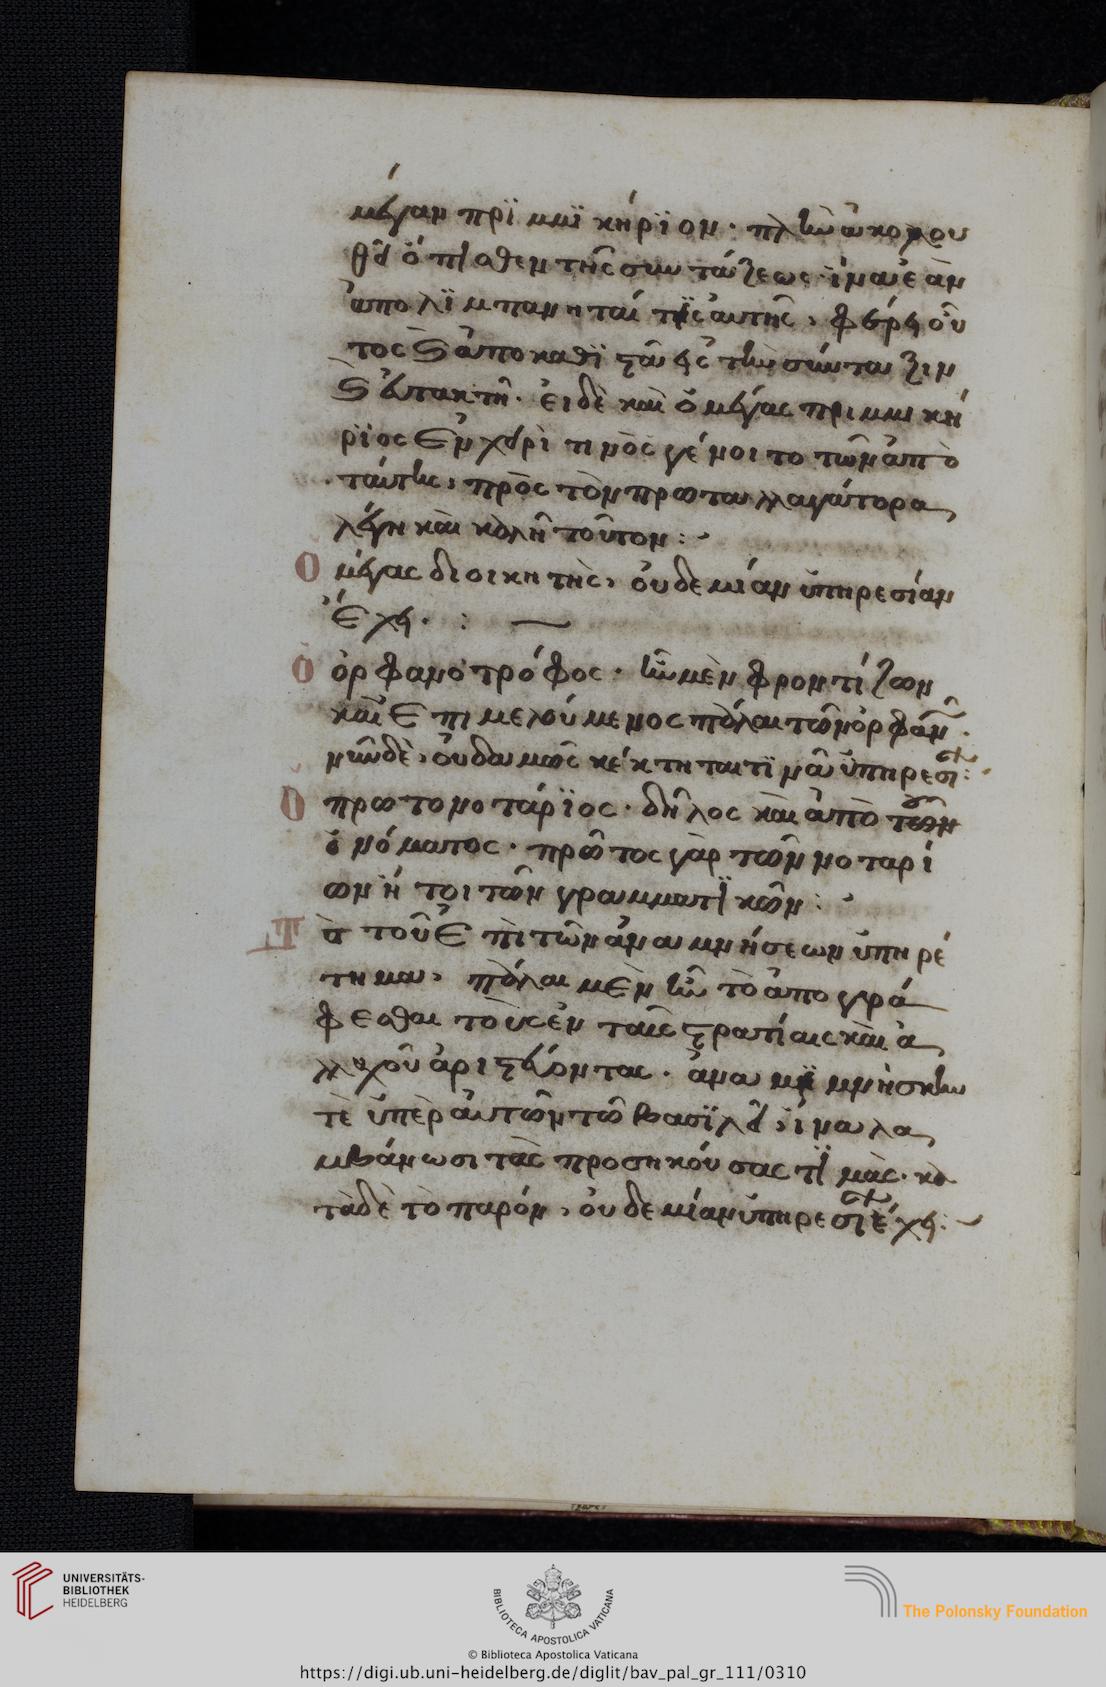 μέγαν πρϊμμϊκήρϊον· πλὴν ἀκολου
θεῖ ὄπισθεν τῆς συντάξεως· ἵνα ἐὰν
ἀπολϊμπάνηταί τϊς ἀυτῆς, φέρῃ οὗ
τος καὶ ἀποκαθϊστᾶ εἰς τὴν σύνταξιν
καὶ ἐυτακτῆ· ἐι δὲ καὶ ὁ μέγας πριμμική
ρϊος ἐν χειρὶ τινὸς γένοιτο τῶν ἀπὸ
ταύτης, πρὸς τὸν πρωταλλαγάτορα
λέγη καὶ κολῆ τοῦτον:
Ὁ μέγας διοικητὴς, οὐδεμίαν ὑπηρεσίαν
ἔχει· :
Ὁ ὀρφανοτρόφος· ἦν μὲν φροντίζων
καὶ ἐπιμελούμενος πάλαι τῶν ὀρφανῶν·
νῦν δὲ, οὐδαμῶς κέκτηταί τϊνα ὑπηρεσίαν:
Ὁ πρωτονοτάρϊος· δῆλος καὶ ἀπὸ τοῦ
ὀνόματος· πρῶτος γὰρ τῶν νοταρί
ων ἤτοι τῶν γραμματϊκῶν:
Τὸ τοῦ ἐπὶ τῶν ἀναμνήσεων ὑπηρέ
τημα, πάλαι μὲν ἦν τὸ ἀπογρά
φεσθαι τοὺς ἐν ταῖς στρατίαις καὶ ἀ
λλαχοῦ ἀριστεύοντας· ἀναμιμνήσκειν
τὲ ὑπὲρ ἀυτῶν τῶ βασϊλεῖ, ἵνα λα
μβάνωσι τὰς προσηκούσας τϊμὰς· κα
τὰ δὲ τὸ παρόν, οὐδεμίαν ὑπηρεσίαν ἔχει:
UNIVERSITÄTS-
BIBLIOTHEK
HEIDELBERG
BIBLIOTECA APOSTOLICA VATICANA
The Polonsky Foundation
© Biblioteca Apostolica Vaticana
https://digi.ub.uni-heidelberg.de/diglit/bav_pal_gr_111/0310